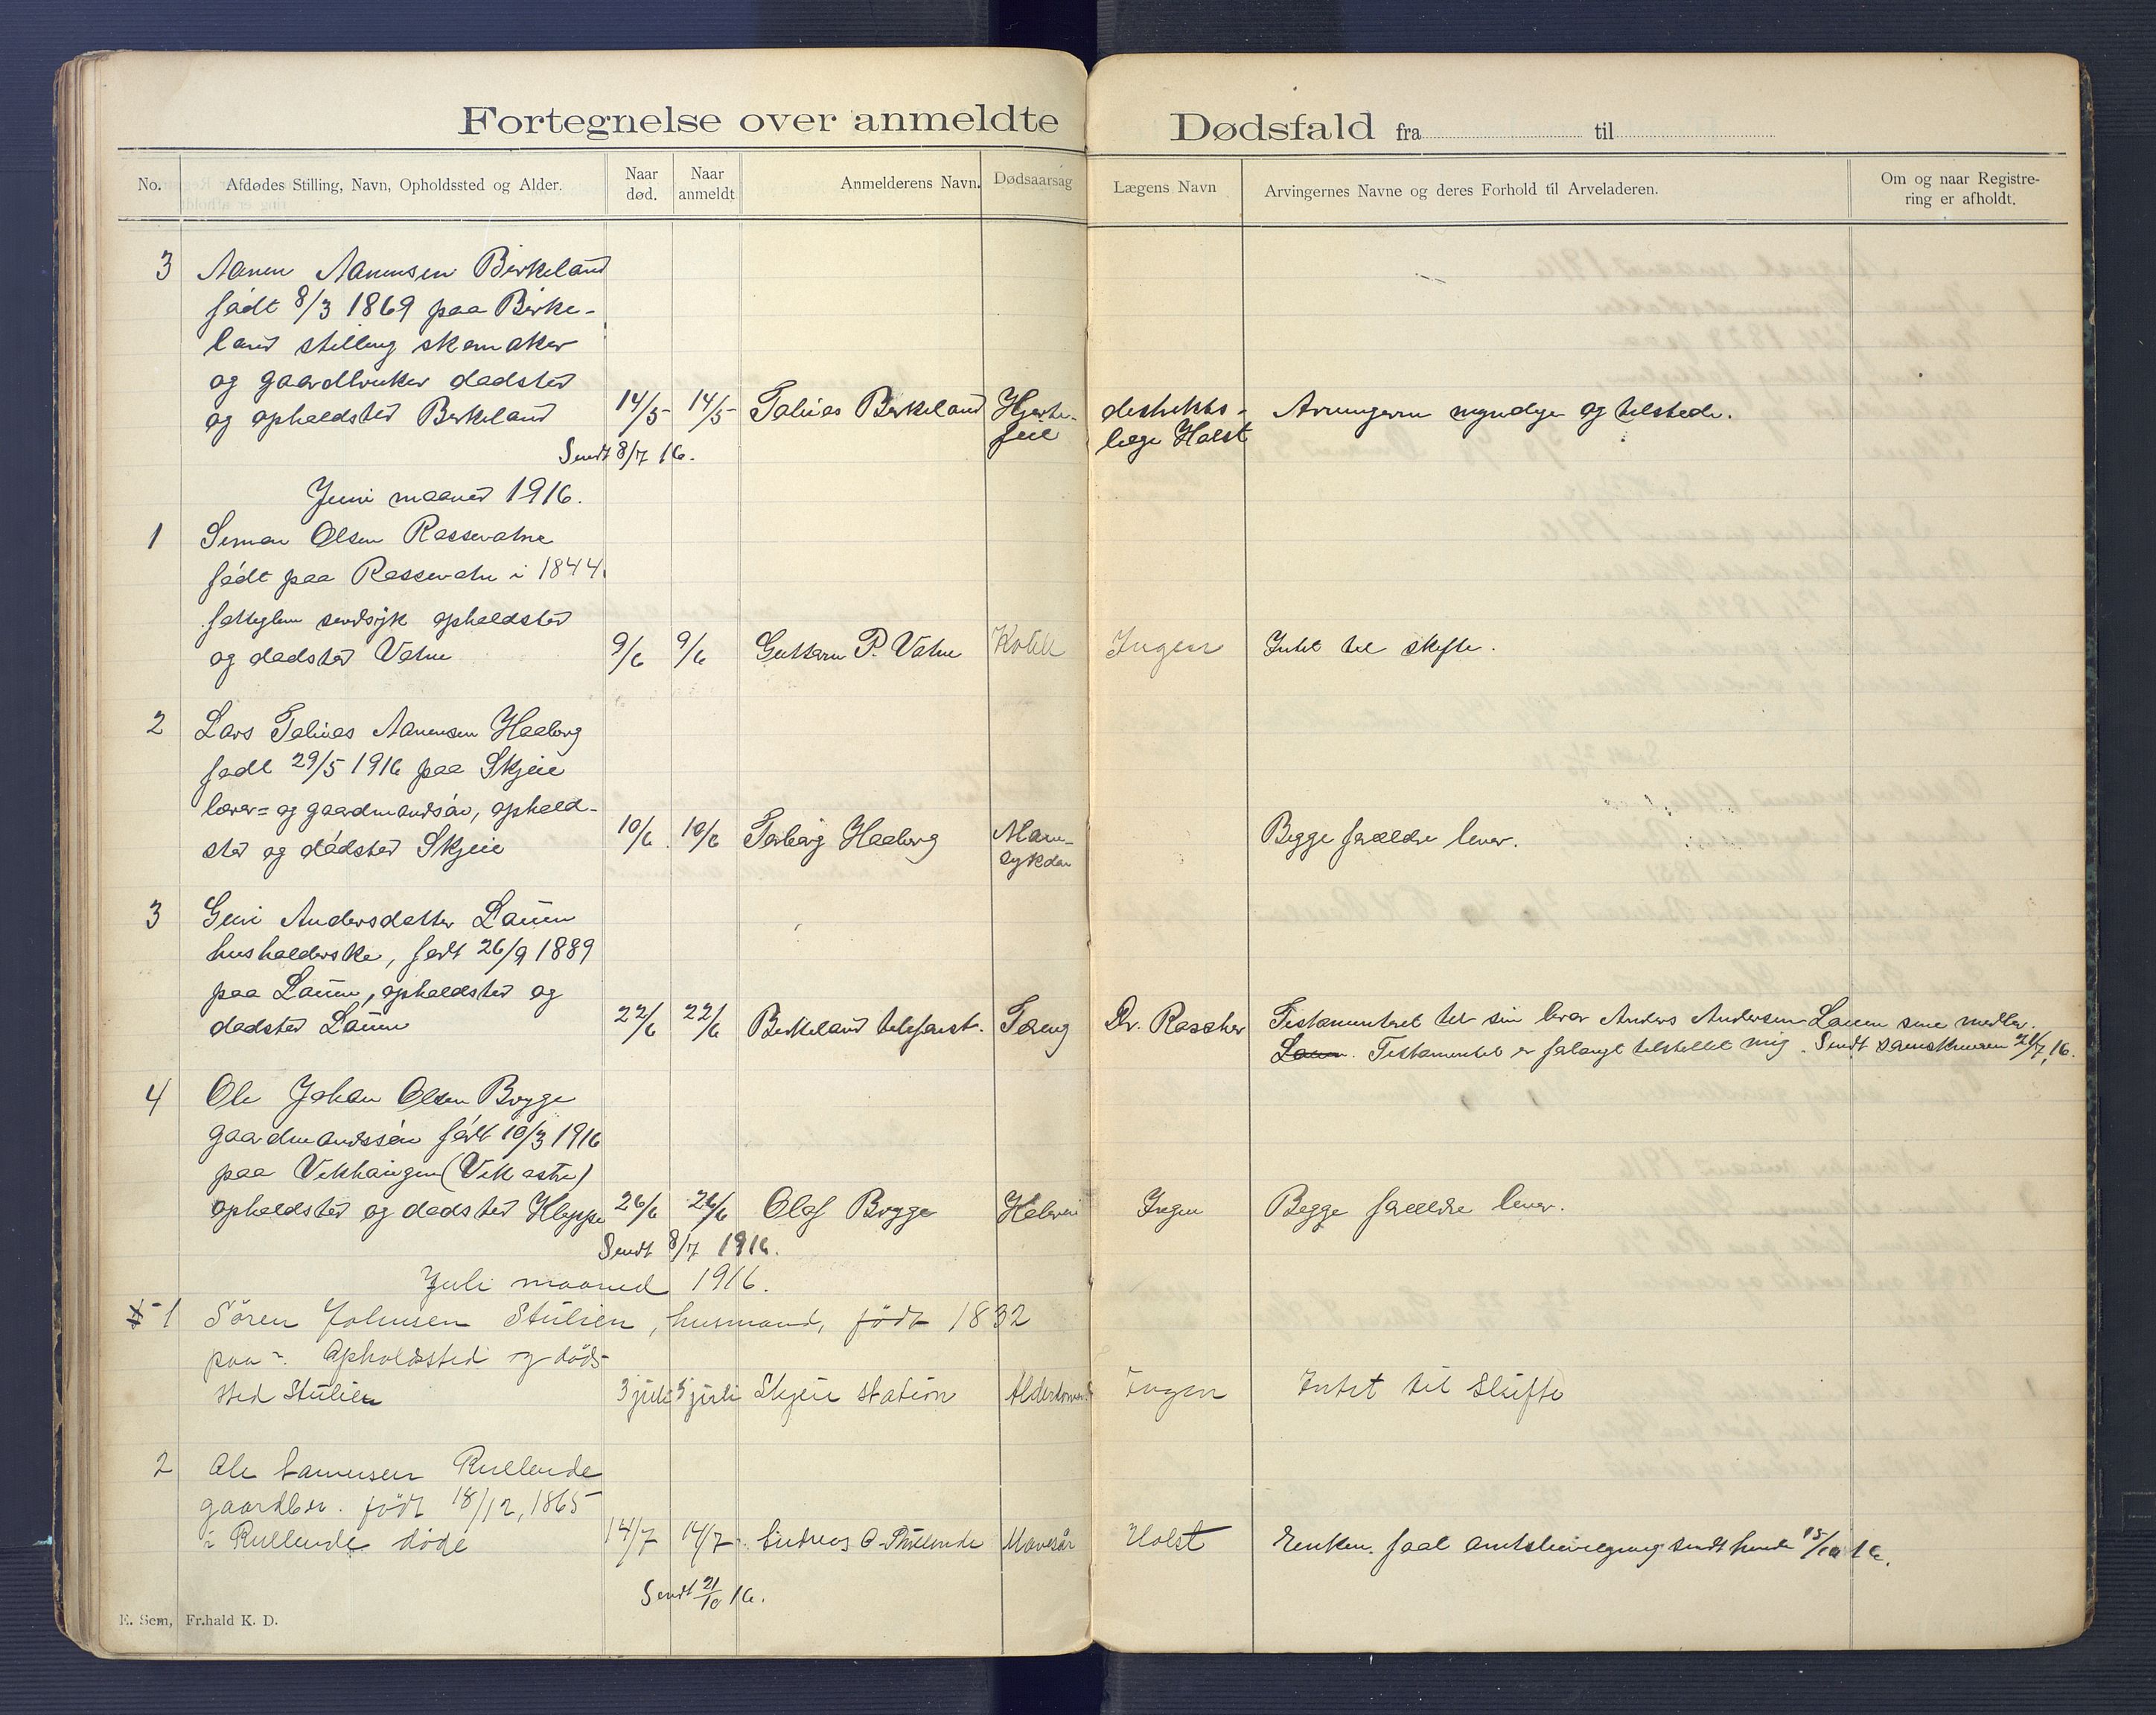 Fortegnelse over anmeldte Dødsfald fra til
No.
Afdødes Stilling, Navn, Opholdssted og Alder.
Naar død.
Naar anmeldt
Anmelderens Navn.
Dødsaarsag
Lægens Navn
Arvingernes Navne og deres Forhold til Arveladeren.
Om og naar Registre-
ring er afholdt.
3 Aanen Aanensen Birkeland
född 8/3 1869 paa Birke-
land stilling skomaker
og gaardbruker dödsted
og opholdsted Birkeland 14/5 14/5 Tobias Birkeland Hjerte- distrikts- Arvingerne myndige og tilstede.
feil læge Holst
Sendt 8/7 16.
Juni maaned 1916.
1 Simon Olsen Rossevatne
född paa Rossevatn i 1844.
fatteglem sindsyk opholdsted
og dödsted Vatne 9/6 9/6 Guttorm P. Vatne Ingen Intet til skifte.
2 Lars Tobias Aanensen Haaberg
född 29/5 1916 paa Skjeie
lærer= og gaardmandsön, ophold-
sted og dödsted Skjeie 10/6 10/6 Torborg Haaberg Mave- Begge forældre lever.
sykdom
3 Guri Andersdatter Lauen
husholderske, född 26/9 1889
paa Lauen, opholdsted og
dödsted Lauen 22/6 22/6 Birkeland telefonst. Tæring Dr. Rascher Testamenteret til sin bror Anders Andersen Lauen sine midler.
Lauen. Testamentet er forlangt tilstillet mig. Sendt sorenskriveren 21/7, 16.
4 Ole Johan Olsen Brygge
gaardmandssön född 10/3 1916
paa Vekhaugen (Vik östre)
opholdsted og dödsted Kloppe 26/6 26/6 Olaf Brygge Ingen Begge forældre lever.
Sendt 8/7 1916.
Juli maaned 1916.
1 Sören Johnsen Stulien, husmand, född 1832
paa ". Opholdssted og döds-
sted Stulien 3 juli 5 juli Skjeie station Alderdomss Ingen Intet til skifte
2 Ole Rullende
gaardbr. född 18/12, 1865
i Rullende döde 14/7 14/7 Andreas O. Rullende Mavesår Holst Enken. faat sendt hende 15/10 16.
Sendt 21/10 16.
E. Sem, Fr.hald K. D.